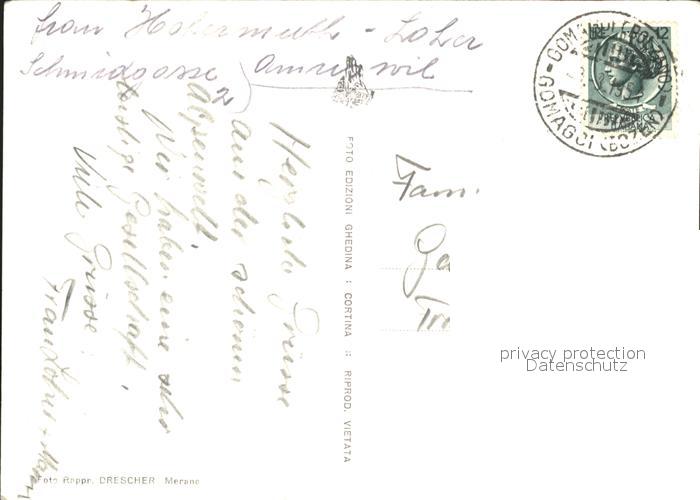 Frau Hofermuth - Loher
Schmidgasse Amriswil
2
Herzliche Grüsse
aus der schönen
Alpenwelt.
Wir haben eine sehr
lustige Gesellschaft.
Viele Grüsse
Frau Loher
FOTO EDIZIONI GHEDINA :: CORTINA :: RIPROD. VIETATA
Foto Rappr. DRESCHER Merano
Fam.
LIRE 12
GOMAGOI (BOLZANO)
GOMAGOI (BOZEN)
privacy protection
Datenschutz